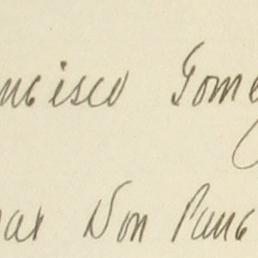 ncisco Gome
Don Panc